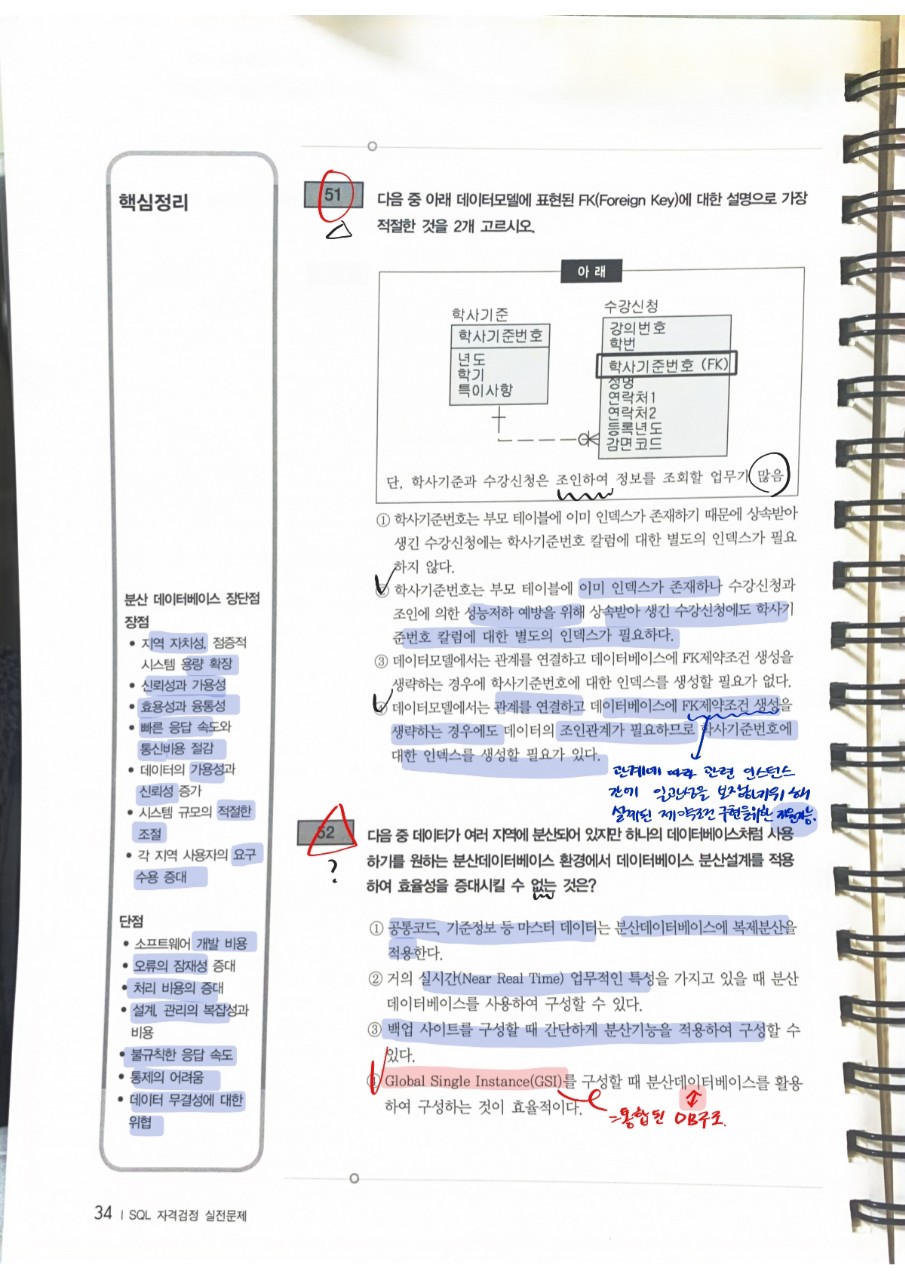 핵심정리
분산 데이터베이스 장단점
장점
• 지역 자치성, 점증적
시스템 용량 확장
• 신뢰성과 가용성
• 효용성과 융통성
• 빠른 응답 속도와
통신비용 절감
• 데이터의 가용성과
신뢰성 증가
• 시스템 규모의 적절한
조절
• 각 지역 사용자의 요구
수용 증대
단점
• 소프트웨어 개발 비용
• 오류의 잠재성 증대
• 처리 비용의 증대
• 설계, 관리의 복잡성과
비용
• 불규칙한 응답 속도
• 통제의 어려움
• 데이터 무결성에 대한
위협
51
다음 중 아래 데이터모델에 표현된 FK(Foreign Key)에 대한 설명으로 가장
적절한 것을 2개 고르시오.
아 래
학사기준
학사기준번호
년도
학기
특이사항
수강신청
강의번호
학번
학사기준번호 (FK)
성명
연락처1
연락처2
등록년도
감면코드
단, 학사기준과 수강신청은 조인하여 정보를 조회할 업무가 많음
① 학사기준번호는 부모 테이블에 이미 인덱스가 존재하기 때문에 상속받아
생긴 수강신청에는 학사기준번호 칼럼에 대한 별도의 인덱스가 필요
하지 않다.
② 학사기준번호는 부모 테이블에 이미 인덱스가 존재하나 수강신청과
조인에 의한 성능저하 예방을 위해 상속받아 생긴 수강신청에도 학사기
준번호 칼럼에 대한 별도의 인덱스가 필요하다.
③ 데이터모델에서는 관계를 연결하고 데이터베이스에 FK제약조건 생성을
생략하는 경우에 학사기준번호에 대한 인덱스를 생성할 필요가 없다.
④ 데이터모델에서는 관계를 연결하고 데이터베이스에 FK제약조건 생성을
생략하는 경우에도 데이터의 조인관계가 필요하므로 학사기준번호에
대한 인덱스를 생성할 필요가 있다.
관계에 따라 관련 인스턴스
간에 일관성을 보장하기위해
설계된 제약조건 구현을위한 지원기능.
52
?
다음 중 데이터가 여러 지역에 분산되어 있지만 하나의 데이터베이스처럼 사용
하기를 원하는 분산데이터베이스 환경에서 데이터베이스 분산설계를 적용
하여 효율성을 증대시킬 수 없는 것은?
① 공통코드, 기준정보 등 마스터 데이터는 분산데이터베이스에 복제분산을
적용한다.
② 거의 실시간(Near Real Time) 업무적인 특성을 가지고 있을 때 분산
데이터베이스를 사용하여 구성할 수 있다.
③ 백업 사이트를 구성할 때 간단하게 분산기능을 적용하여 구성할 수
있다.
④ Global Single Instance(GSI)를 구성할 때 분산데이터베이스를 활용
하여 구성하는 것이 효율적이다.
=통합된 DB구조.
34 | SQL 자격검정 실전문제